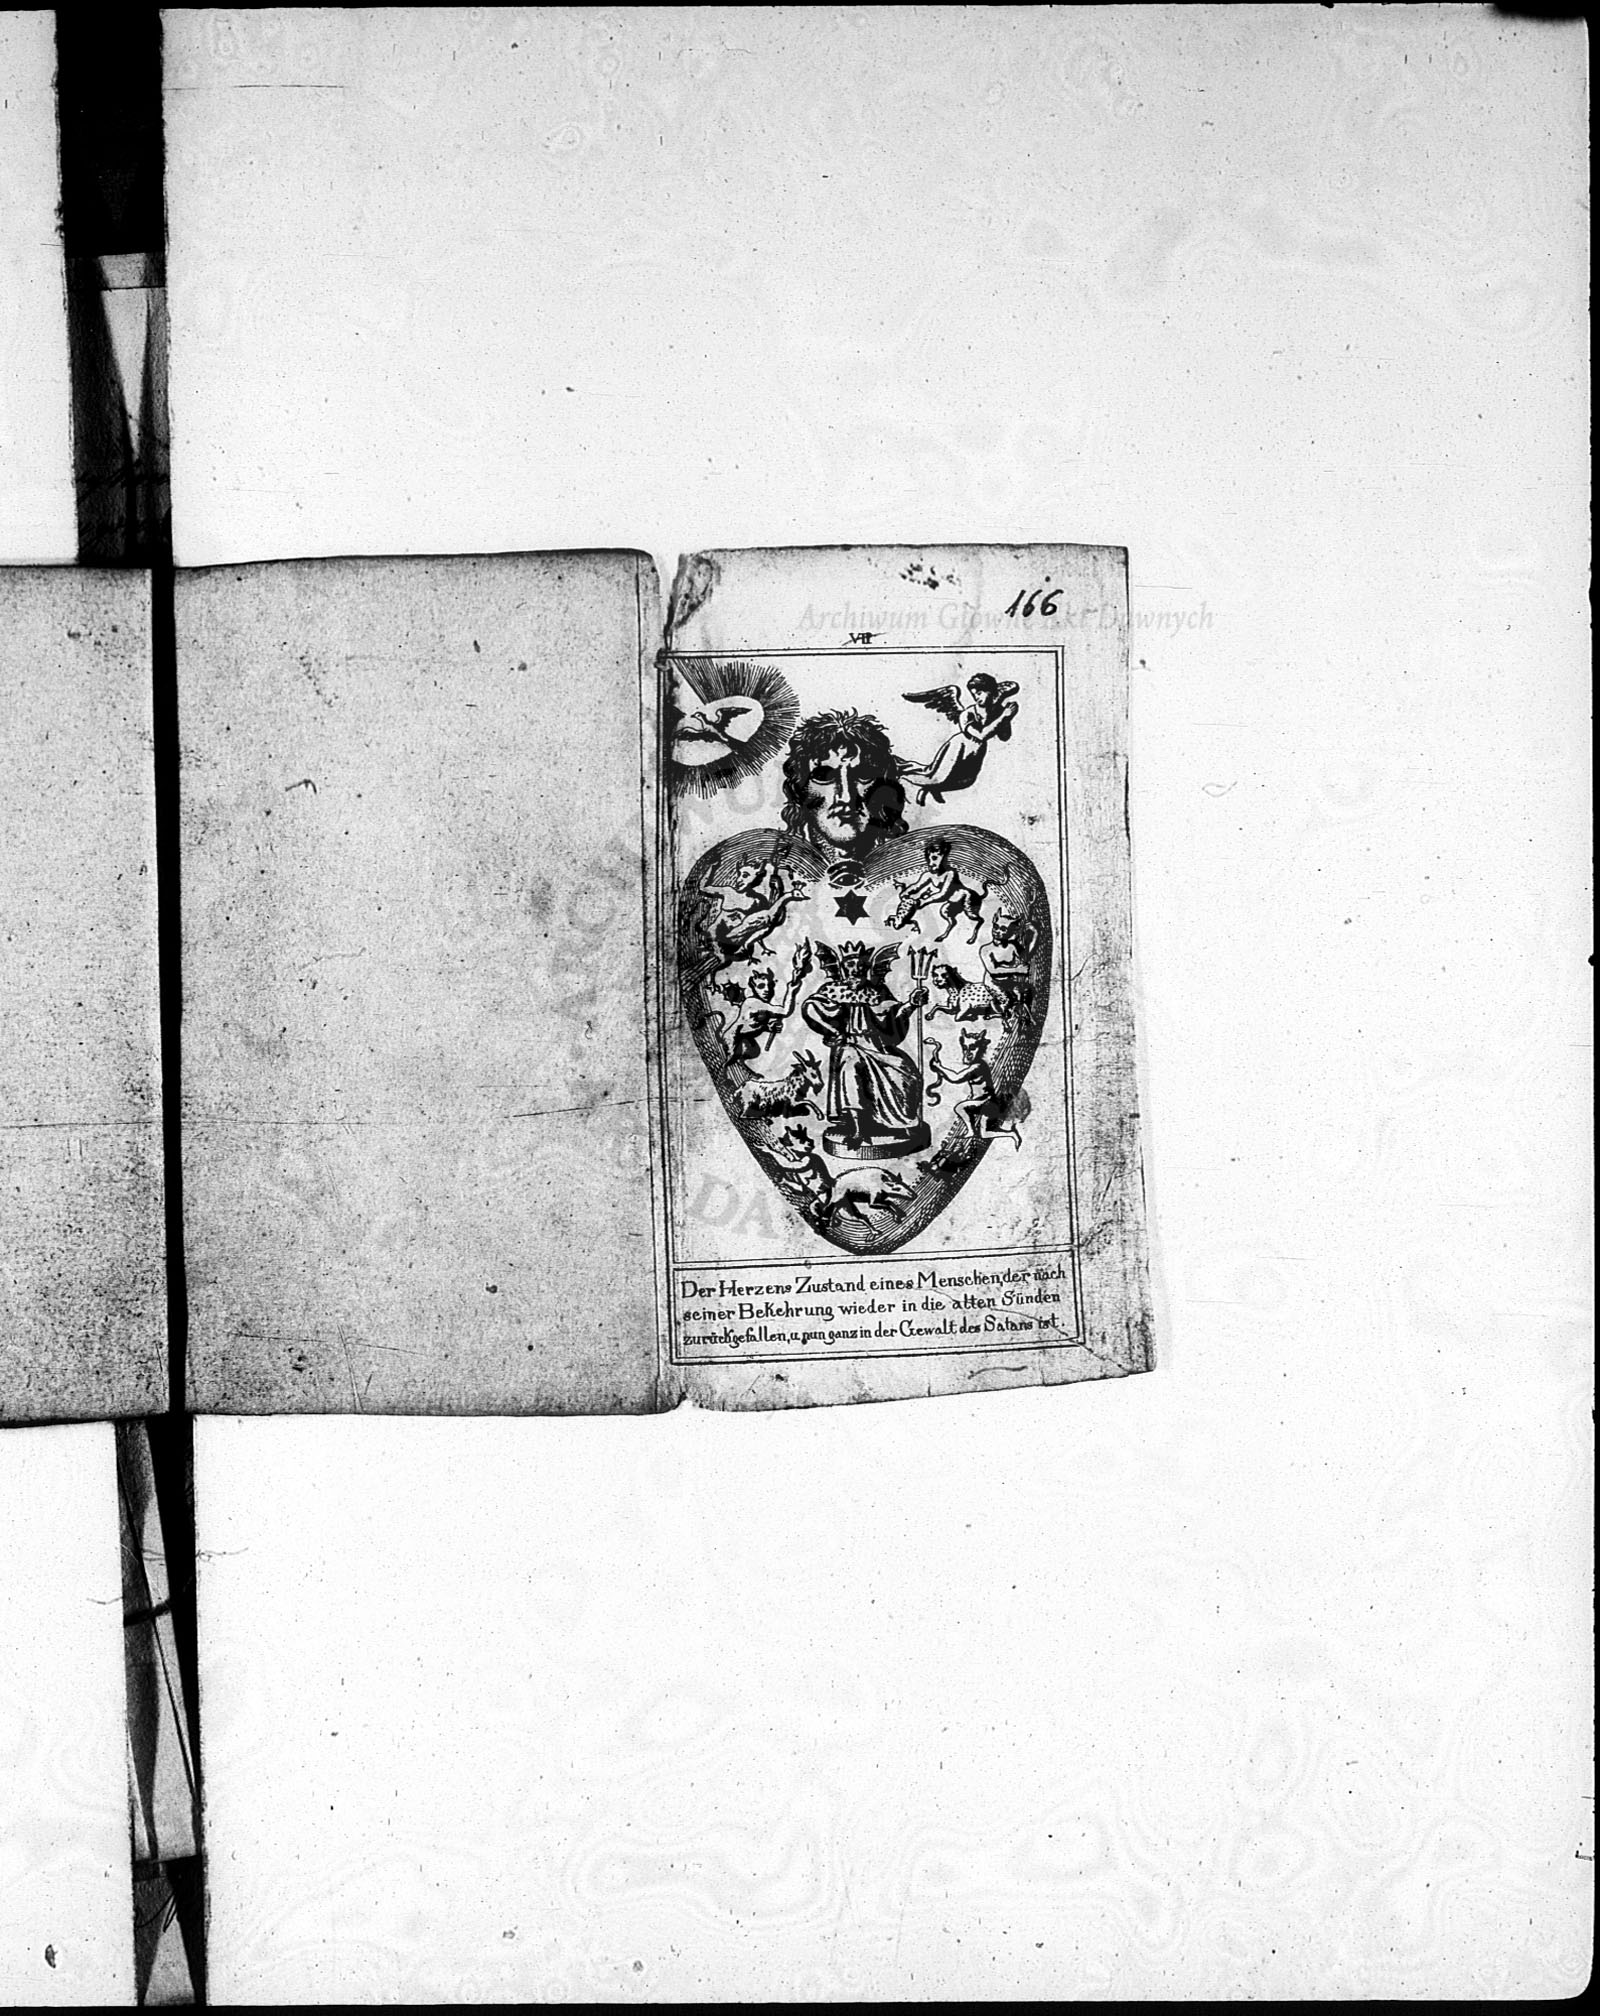 166
Archiwum Główne Akt Dawnych
VII
Der Herzens Zustand eines Menschen, der nach
seiner Bekehrung wieder in die alten Sünden
zurückgefallen, u. nun ganz in der Gewalt des Satans ist.